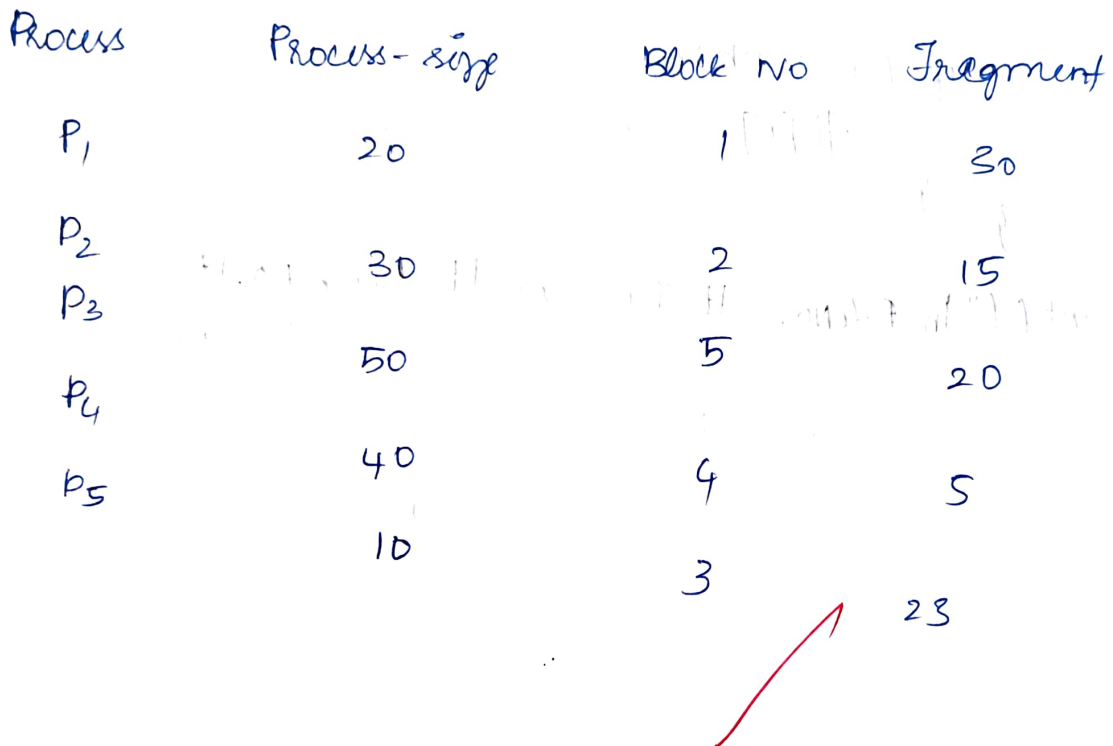 Process Process-size Block No Fragment
P1 20 1 30
P2 30 2 15
P3 50 5 20
P4 40 4 5
P5 10 3 23